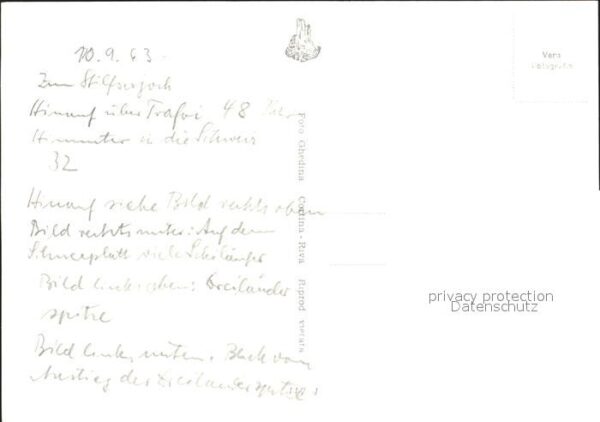 10.9.63
Zum Stilfserjoch
Hinauf über Trafoi 48
Hinunter in die Schweiz
32
Hinauf siehe Bild rechts oben
Bild rechts unter: Auf dem
viele Skiläufer
Bild links oben: Dreiländer
spitze
Bild links unten: Blick vom
Anstieg der Dreiländerspitze
Foto Ghedina Cortina-Riva Riprod. vietata
Vera
Fotografia
privacy protection
Datenschutz